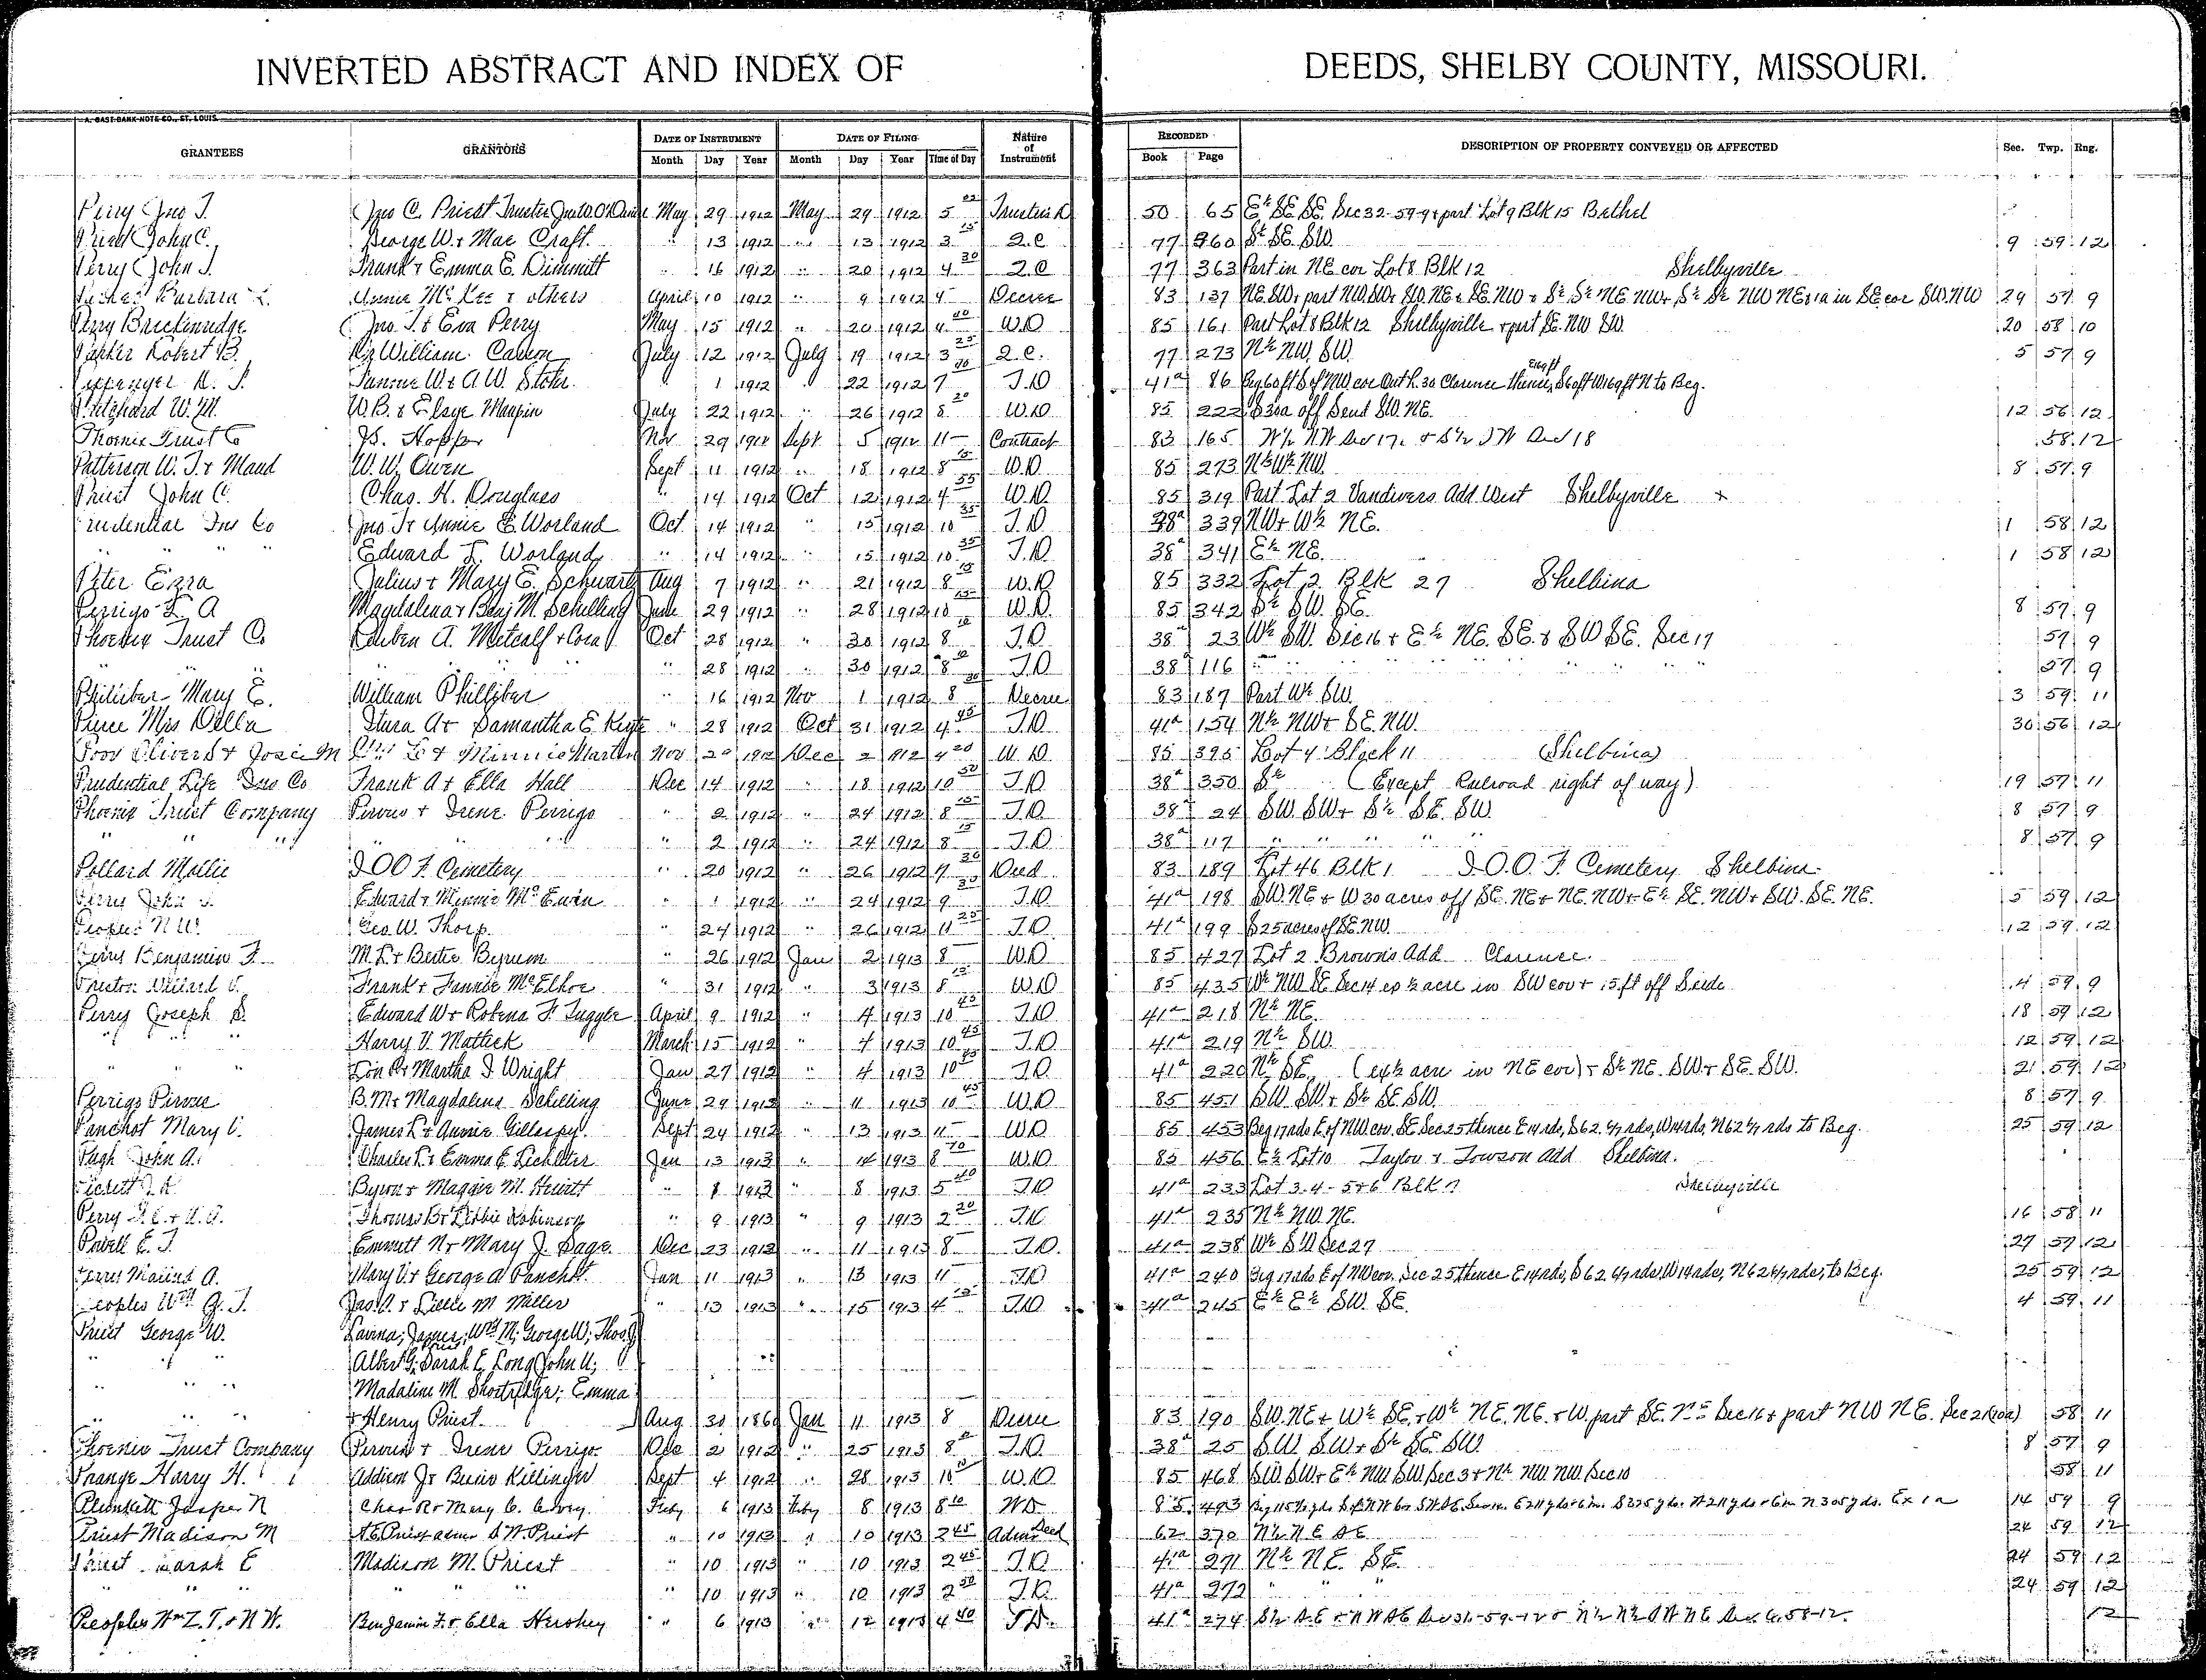 INVERTED ABSTRACT AND INDEX OF DEEDS, SHELBY COUNTY, MISSOURI.
A. GAST BANK NOTE CO., ST. LOUIS.
GRANTEES GRANTORS DATE OF INSTRUMENT DATE OF FILING Nature of Instrument RECORDED DESCRIPTION OF PROPERTY CONVEYED OR AFFECTED Sec. Twp. Rng.
Month Day Year Month Day Year Time of Day Book Page
Perry Jno T. Jno C. Priest Trustee May 29 1912 May 29 1912 5 Trustees D 50 65 E½ SE SE. Sec 32-59-9 & part Lot 9 Blk 15 Bethel
Priest John C. George W. & Mae Craft. " 13 1912 " 13 1912 3 15 Q.C. 77 360 S½ SE. SW. 9 59 12
Perry John T. Frank & Emma E. Dimmitt " 16 1912 " 20 1912 4 30 Q.C. 77 363 Part in NE cor Lot 8 Blk 12 Shelbyville
Barbara L. Annie McKee & others April 10 1912 " 9 1912 4 Decree 83 137 NE. SW & part NW SW & SW. NE & SE. NW & S½ S½ NE NW & S½ S½ NW NE & 1a in SE cor SW. NW 29 57 9
Perry Brickenridge Jno. T. & Eva Perry May 15 1912 " 20 1912 4 W.D. 85 161 Part Lot 8 Blk 12 Shelbyville & part SE. NW SW. 20 58 10
Parker Robert B. William July 12 1912 July 19 1912 3 25 Q.C. 77 273 N½ NW. SW. 5 57 9
W. & A.W. " 1 1912 " 22 1912 7 T.D 41a 86 Beg 60 ft S of NW cor Out L. 30 Clarence thence S 60 ft W 169 ft N to Beg.
Pritchard W. M. W.B. & Elsye Maupin July 22 1912 " 26 1912 8 20 W.D 85 222 S 30a off S end SW. NE. 12 56 12
Phoenix Trust Co Hopper Nov 29 1912 Sept 5 1912 11 Contract 83 165 N½ NW Sec 17. & S½ SW Sec 18 58 12
Patterson W. T. & Maud W. W. Owen Sept 11 1912 " 18 1912 8 15 W.D. 85 273 N½ W½ NW. 8 57 9
Priest John C. Chas. H. Douglass " 14 1912 Oct 12 1912 4 35 W.D. 85 319 Part Lot 2 Vandivers Add West Shelbyville x
Prudential Ins Co Jno. T & Annie E. Worland Oct 14 1912 " 15 1912 10 35 T.D 38a 339 NW & W½ NE. 1 58 12
" " " Edward T. Worland " 14 1912 " 15 1912 10 35 T.D. 38a 341 E½ NE. 1 58 12
Peter Ezra Julius & Mary E. Schwartz Aug 7 1912 " 21 1912 8 15 W.D. 85 332 Lot 2 Blk 27 Shelbina
Perrigo L. A Magdalena & Benj M. Schilling June 29 1912 " 28 1912 10 W.D. 85 342 S½ SW. SE. 8 57 9
Phoenix Trust Co Reuben A. Metcalf & Cora Oct 28 1912 " 30 1912 8 T.D. 38a 23 W½ SW. Sec 16 & E½ NE. SE. & SW SE. Sec 17 57 9
" " " " 28 1912 " 30 1912 8 T.D 38a 116 " " " " 57 9
Philliber Mary E. William Philliber " 16 1912 Nov 1 1912 8 30 Decree 83 187 Part W½ SW. 3 59 11
Pierce Mrs Della A & Samantha E " 28 1912 Oct 31 1912 4 45 T.D 41a 154 N½ NW & SE. NW. 30 56 12
Poor Oliver S & Josie M & Minnie Martin Nov 20 1912 Dec 2 1912 4 20 W.D 85 395 Lot 4 Block 11 Shelbina
Prudential Life Ins Co Frank A & Ella Hall Dec 14 1912 " 18 1912 10 50 T.D 38a 350 S½ (Except Railroad right of way) 19 57 11
Phoenix Trust Company Pervus & Irene Perrigo " 2 1912 " 24 1912 8 15 T.D. 38a 24 SW. SW & S½ SE. SW. 8 57 9
" " " " 2 1912 " 24 1912 8 15 T.D 38a 117 " " " " 8 57 9
Pollard Mollie I.O.O.F. Cemetery " 20 1912 " 26 1912 4 30 Deed 83 189 Lot 46 Blk 1 I.O.O.F. Cemetery Shelbina
Perry John T. Edward & Minnie McEuin " 1 1912 " 24 1912 9 T.D. 41a 198 SW. NE & W 30 acres off SE. NE & NE. NW & E½ SE. NW & SW. SE. NE. 5 59 12
Peoples N.W. Geo. W. Thorp. " 24 1912 " 26 1912 11 25 T.D 41a 199 S 25 acres of SE. NW. 12 59 12
Perry Benjamin F. M.L. & Bertie Byrum " 26 1912 Jan 2 1913 8 W.D 85 427 Lot 2 Brown's Add Clarence.
Preston Willard Frank & Fannie McElhoe " 31 1912 " 3 1913 8 15 W.D 85 435 W½ NW SE Sec 14 ex ½ acre in SW cor & 15 ft off S side 4 59 9
Perry Joseph S. Edward W & Robena F. Tuggle April 9 1912 " 4 1913 10 45 T.D 41a 218 N½ NE. 18 59 12
" " Harry V. Mattick March 15 1912 " 4 1913 10 45 T.D 41a 219 N½ SW. 12 59 12
" " & Martha I Wright Jan 27 1912 " 4 1913 10 45 T.D. 41a 220 N½ SE. (ex ½ acre in NE cor) & S½ NE. SW & SE. SW. 21 59 12
Perrigo Pervus B.M. & Magdalena Schilling June 29 1912 " 11 1913 10 45 W.D 85 451 SW. SW & S½ SE SW 8 57 9
Panchot Mary V. James L & Annie Gillaspy. Sept 24 1912 " 13 1913 11 W.D 85 453 Beg 17 rds E of NW cor. SE Sec 25 thence E 14 rds, S 62 6/7 rds, W 14 rds, N 62 6/7 rds to Beg. 25 59 12
Pugh John A. Charles F. & Emma E. Lichliter Jan 13 1913 " 14 1913 8 W.D 85 456 E½ Lot 10 Taylor & Towson Add Shelbina.
Pickett Byron & Maggie M. Hewitt " 8 1913 " 8 1913 5 40 T.D 41a 233 Lot 3-4-5 & 6 Blk Shelbyville
Perry Thomas B & Libbie Robinson " 9 1913 " 9 1913 2 20 T.D. 41a 235 N½ NW. NE. 16 58 11
Powell E. T. Emmett N & Mary J. Sage. Dec 23 1912 " 11 1913 8 T.D. 41a 238 W½ SW Sec 27 27 57 12
Perry Malind A. Mary V. & George A Panchot. Jan 11 1913 " 13 1913 11 T.D 41a 240 Beg 17 rds E of NW cor. Sec 25 thence E 14 rds, S 62 6/7 rds, W 14 rds, N 62 6/7 rds, to Beg. 25 59 12
Peoples Wm Z. T. Jas. V. & Lillie M Miller " 13 1913 " 15 1913 4 15 T.D 41a 245 E½ E½ SW. SE. 4 59 11
Priest George W. Lavina; James; Wm M; George W; Thos J
" " " Albert G; Sarah E. Long; John U;
" " Madaline M. Shortridge; Emma
" " & Henry Priest. Aug 30 1860 Jan 11 1913 8 Decree 83 190 SW. NE & W½ SE. & W½ NE. NE. & W. part SE. NE Sec 16 & part NW NE. Sec 21 (10a) 58 11
Phoenix Trust Company Pervus & Irene Perrigo Dec 2 1912 " 25 1913 8 T.D. 38a 25 SW. SW & S½ SE SW. 8 57 9
Prange Harry H. Addison J & Killinger Sept 4 1912 " 28 1913 10 W.D. 85 468 SW. SW & E½ NW SW Sec 3 & N½ NW. NW. Sec 10 58 11
Plunkett Jasper N Chas R & Mary C. Feby 6 1913 Feby 8 1913 8 10 W.D 85 493 14 59 9
Priest Madison M Priest " 10 1913 " 10 1913 2 45 Admr Deed 62 370 N½ N E S E 24 59 12
Priest Sarah E Madison M. Priest " 10 1913 " 10 1913 2 45 T.D. 41a 271 N½ NE. SE. 24 59 12
" " " " " " " 10 1913 " 10 1913 2 50 T.D. 41a 272 " " " 24 59 12
Peoples Wm Z. T. & N. W. Benjamin F. & Ella Hershey " 6 1913 " 12 1913 4 40 T.D. 41a 274 S½ S.E & N W S E Sec 31-59-12 & N½ N½ N W N E Sec 6-58-12. 12